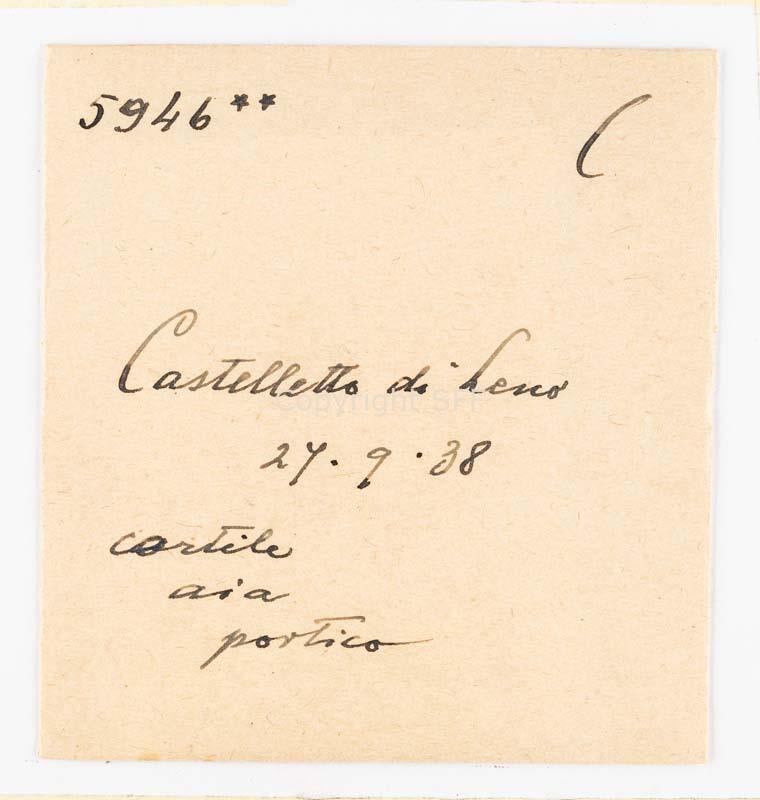 5946** C
Castelletto di Leno
27.9.38
cortile
aia
portico
Copyright SFI